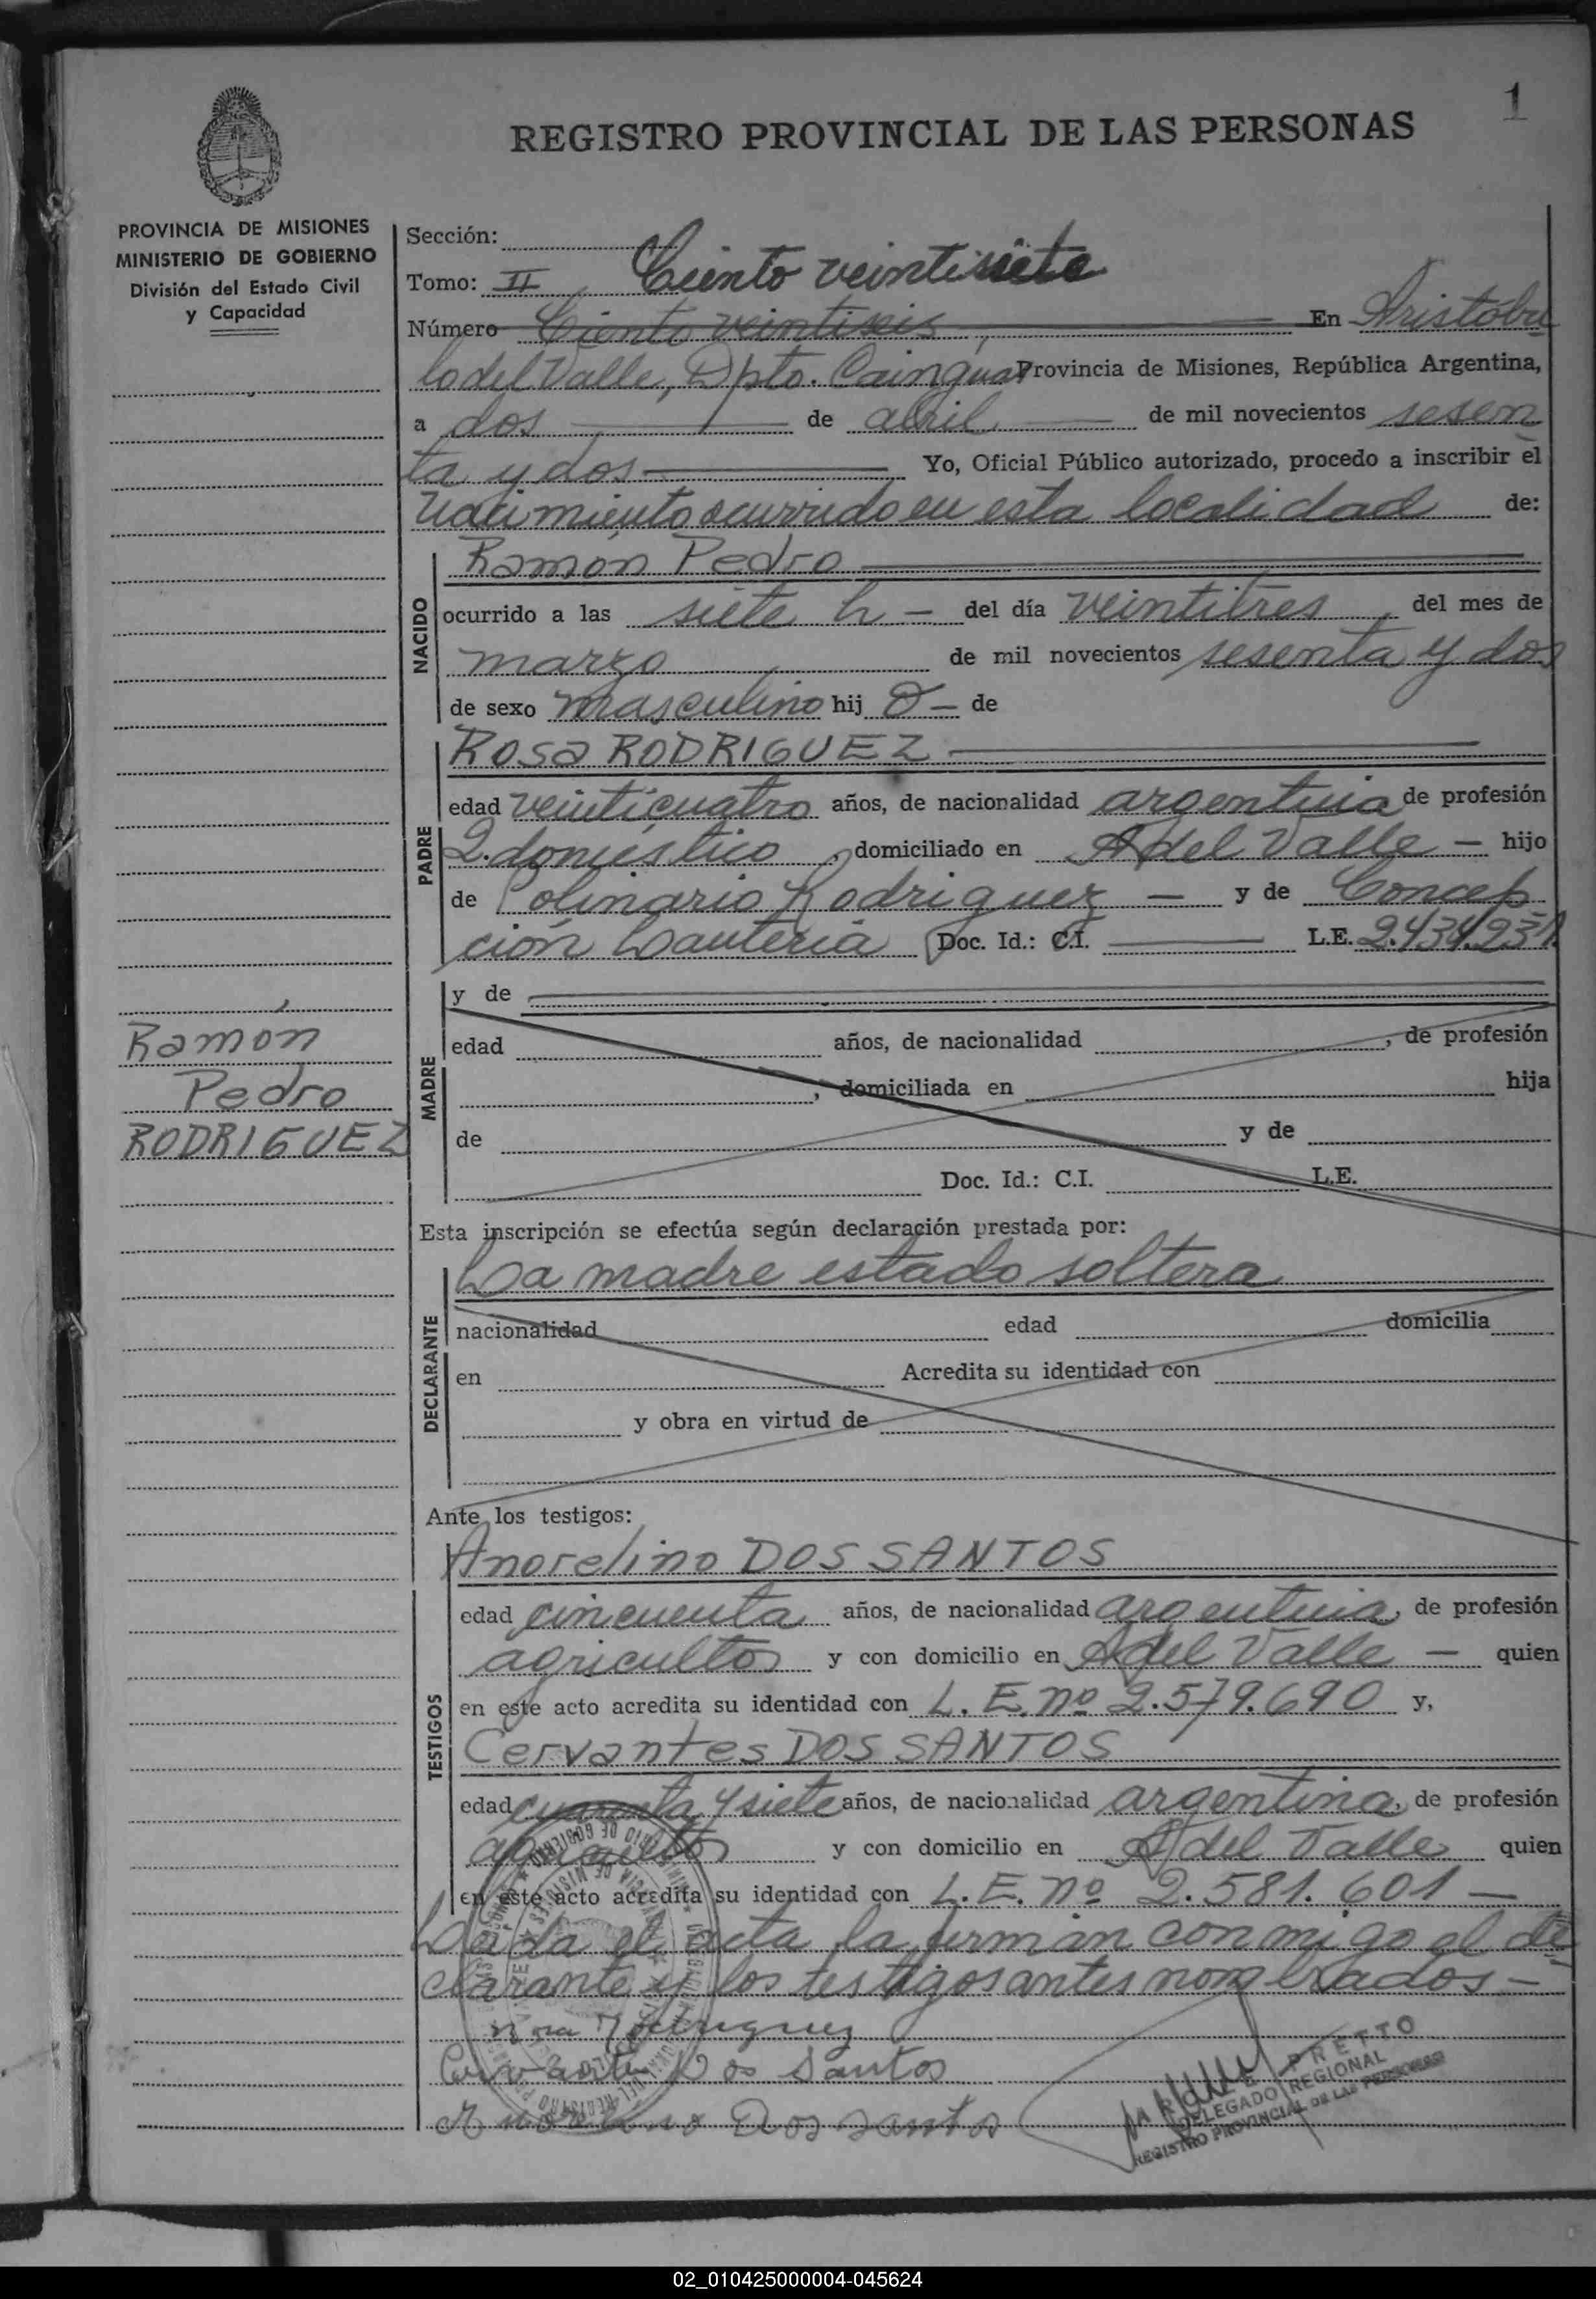 1
REGISTRO PROVINCIAL DE LAS PERSONAS
PROVINCIA DE MISIONES
MINISTERIO DE GOBIERNO
División del Estado Civil
y Capacidad
Sección:
Tomo: II Ciento veintisiete
Número Ciento veintiseis En Aristóbu
lo del Valle, Dpto. Cainguas Provincia de Misiones, República Argentina,
a dos de abril de mil novecientos sesen
ta y dos Yo, Oficial Público autorizado, procedo a inscribir el
nacimiento ocurrido en esta localidad de:
NACIDO
Ramón Pedro
ocurrido a las siete h - del día veintitres, del mes de
marzo de mil novecientos sesenta y dos
de sexo masculino hij o - de
PADRE
Rosa RODRIGUEZ
edad veinticuatro años, de nacionalidad argentina de profesión
Q. doméstico, domiciliado en A del Valle - hijo
de Polinario Rodriguez - y de Concep
ción Lauteria Doc. Id.: C.I. L.E. 2.434.231
MADRE
y de
edad años, de nacionalidad , de profesión
, domiciliada en hija
de y de
Doc. Id.: C.I. L.E.
Ramón
Pedro
RODRIGUEZ
Esta inscripción se efectúa según declaración prestada por:
DECLARANTE
La madre estado soltera
nacionalidad edad domicilia
en Acredita su identidad con
y obra en virtud de
Ante los testigos:
TESTIGOS
Anorelino DOS SANTOS
edad cincuenta años, de nacionalidad argentina, de profesión
agricultor y con domicilio en A del Valle - quien
en este acto acredita su identidad con L. E. nº 2.579.690 y,
Cervantes DOS SANTOS
edad cuarenta y siete años, de nacionalidad argentina, de profesión
agricultor y con domicilio en A del Valle quien
en este acto acredita su identidad con L. E. nº 2.581.601 -
Leida el acta la firman conmigo el de
clarante y los testigos antes nombrados -
Rodriguez
Cervantes Dos Santos
Anorelino Dos santos
PRETTO
DELEGADO REGIONAL
REGISTRO PROVINCIAL DE LAS PERSONAS
02_010425000004-045624